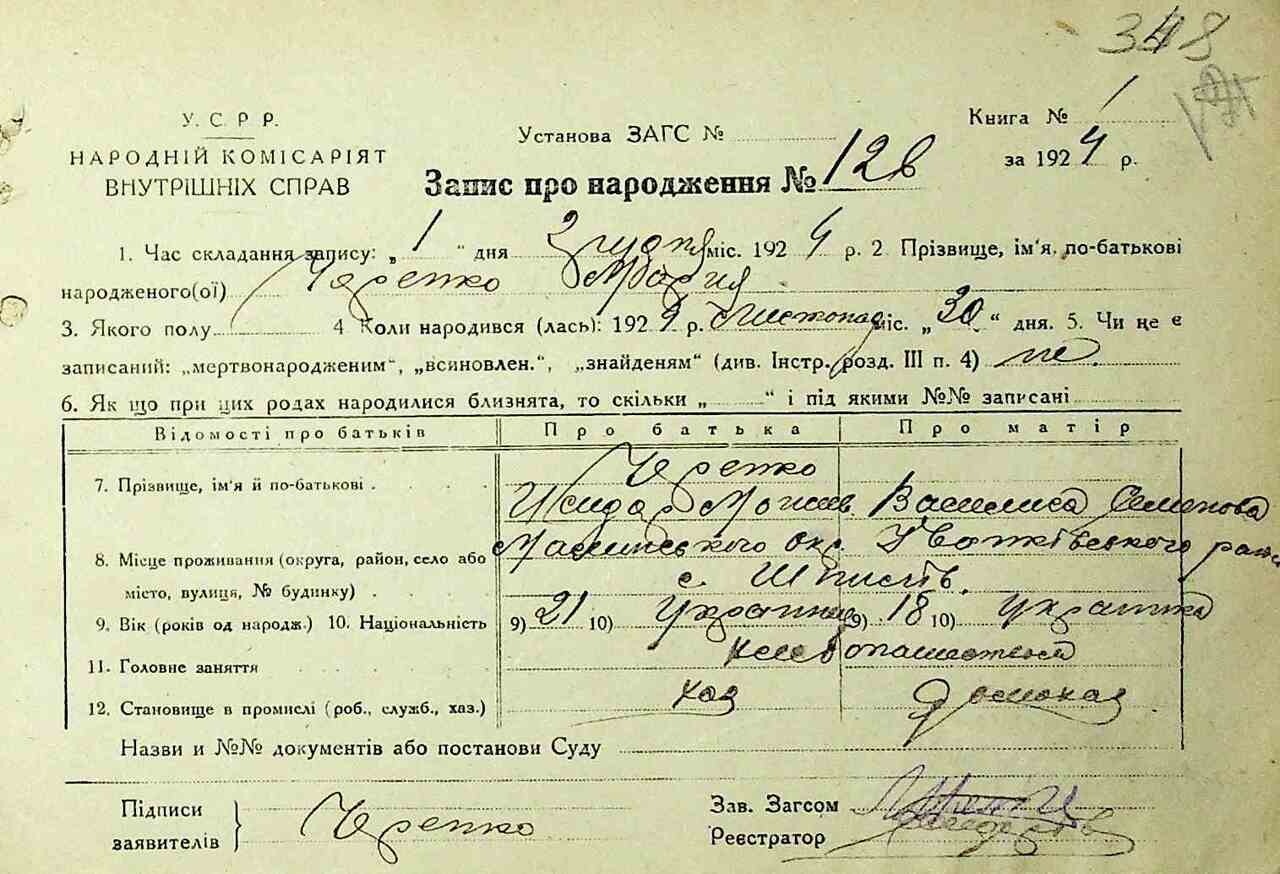 348
У. С. Р. Р.
НАРОДНІЙ КОМІСАРІЯТ
ВНУТРІШНІХ СПРАВ
Установа ЗАГС №
Книга № 1
за 1924 р.
Запис про народження № 128
1. Час складання запису: „ 1 “ дня Грудня міс. 1924 р. 2 Прізвище, ім'я, по-батькові
народженого(ої) Черепко Мария
3. Якого полу 4 Коли народився (лась): 1924 р. Листопад міс. „ 30 “ дня. 5. Чи не є
записаний: „мертвонародженим“, „всиновлен.“, „знайденям“ (див. Інстр. розд. III п. 4) не
6. Як що при цих родах народилися близнята, то скільки „ “ і під якими №№ записані
Відомості про батьків Про батька Про матір
7. Прізвище, ім'я й по-батькові Черепко
Василиса Семенова
8. Місце проживання (округа, район, село або окр. району
місто, вулиця, № будинку) с.
9. Вік (років од народж.) 10. Національність 9) 21 10) Украинец 9) 18 10) украинка
11. Головне заняття
12. Становище в промислі (роб., служб., хаз.) хаз домохаз
Назви и №№ документів або постанови Суду
Підписи
заявителів } Черепко
Зав. Загсом
Реєстратор